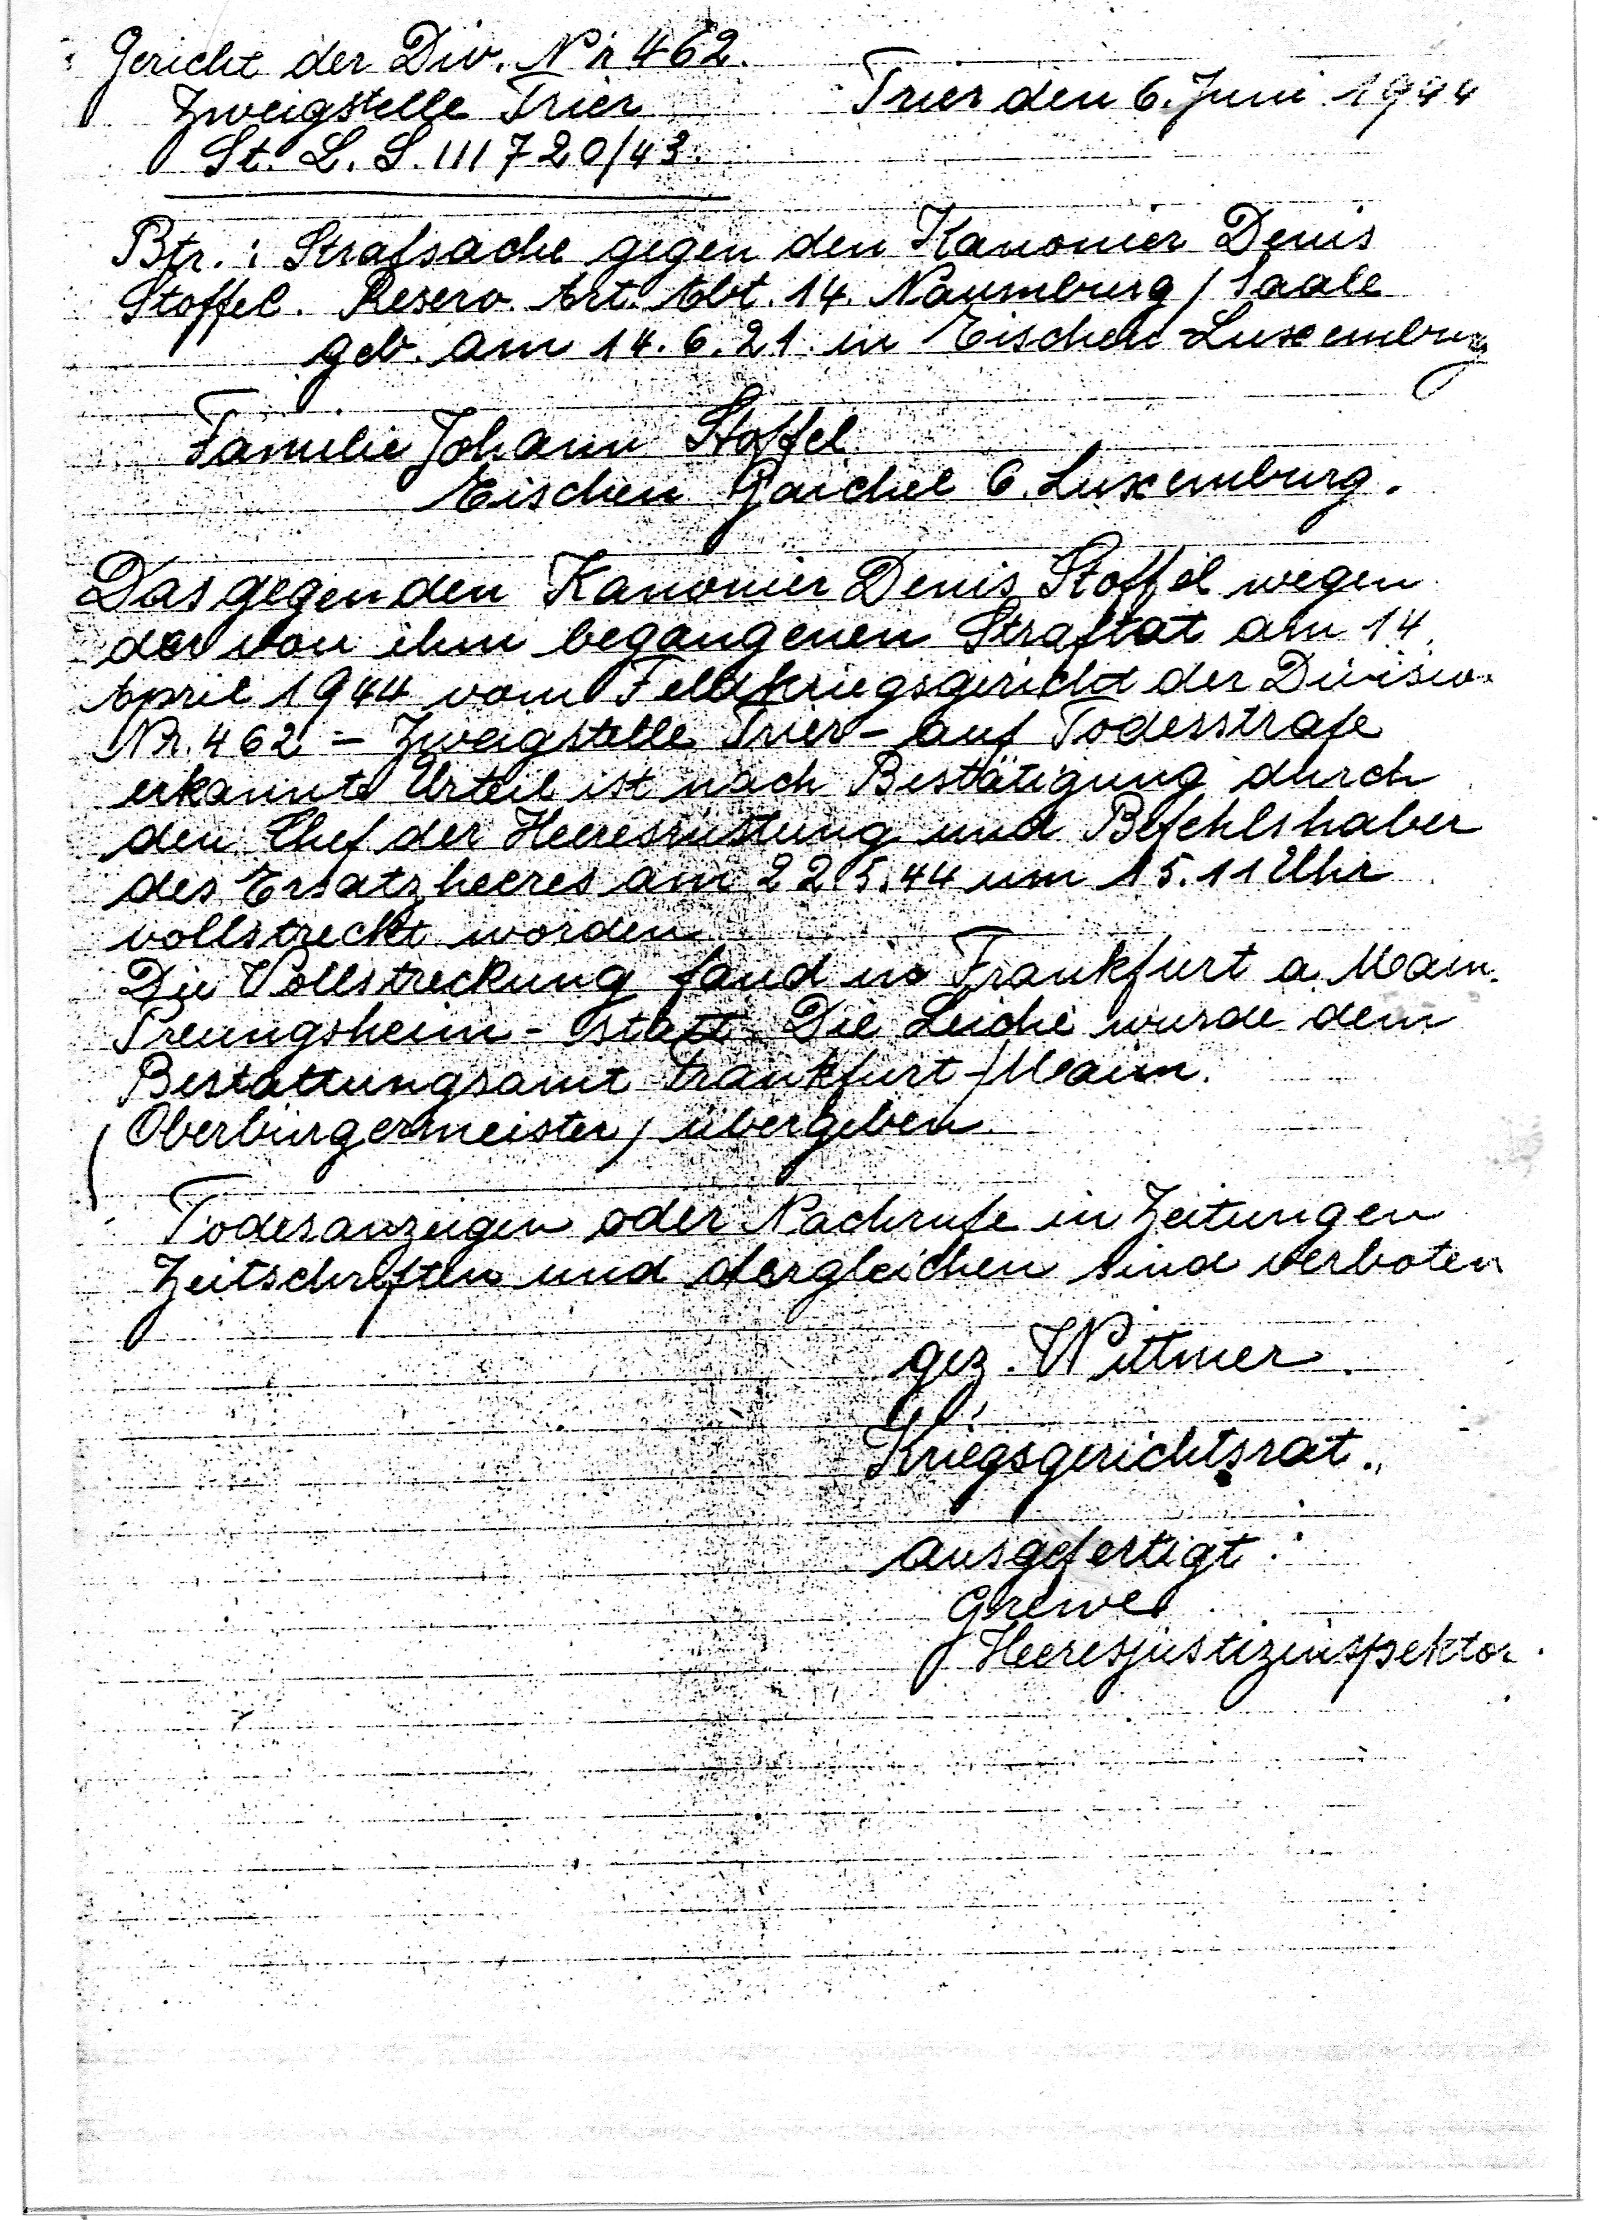 Gericht der Div. Nr 462.
Zweigstelle Trier Trier den 6. Juni 1944
St. L. S. III 720/43.
Btr. : Strafsache gegen den Kanonier Denis
Stoffel. Reserv. Art. Abt. 14. Naumburg / Saale
geb. am 14. 6. 21. in Eischen Luxemburg
Familie Johann Stoffel
Eischen Gaichel 6. Luxemburg.
Das gegen den Kanonier Denis Stoffel wegen
der von ihm begangenen Straftat am 14.
April 1944 vom Feldkriegsgericht der Division
Nr. 462 - Zweigstelle Trier - auf Todesstrafe
erkannte Urteil ist nach Bestätigung durch
den Chef der Heeresrüstung und Befehlshaber
des Ersatzheeres am 22.5.44 um 15.11 Uhr
vollstreckt worden.
Die Vollstreckung fand in Frankfurt a. Main.
Preungsheim - statt. Die Leiche wurde dem
Bestattungsamt Frankfurt-/Main.
(Oberbürgermeister) übergeben.
Todesanzeigen oder Nachrufe in Zeitungen
Zeitschriften und dergleichen sind verboten
gez. Wittmer.
Kriegsgerichtsrat.
ausgefertigt:
Grewe
Heeresjustizinspektor.